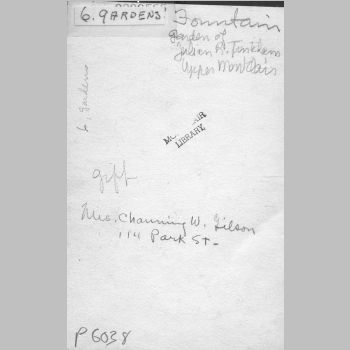 6. GARDENS
Fountain
Garden of
Julian R. Tinkham
Upper Montclair
6. Gardens
LIBRARY
gift
Mrs. Channing W. Gilson
111 Park St.
P6038